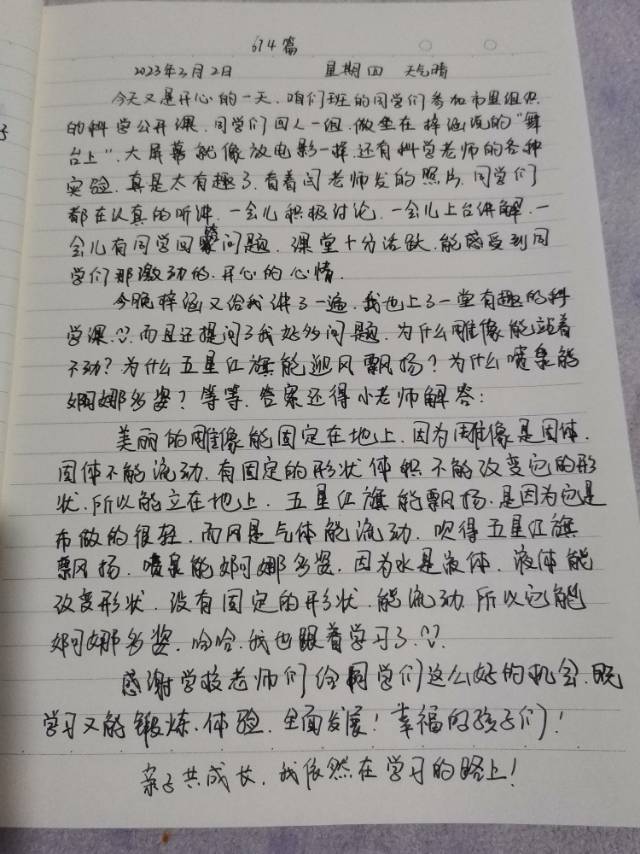 674篇
2023年3月2日 星期四 天气晴
今天又是开心的一天，咱们班的同学们参加市里组织
的科学公开课，同学们四人一组，做坐在梓涵说的“舞
台上”，大屏幕就像放电影一样，还有科学老师的各种
实验，真是太有趣了，看着闫老师发的照片，同学们
都在认真的听讲，一会儿积极讨论，一会儿上台讲解，一
会儿有同学回答问题，课堂十分活跃，能感受到同
学们那激动的，开心的心情，
今晚梓涵又给我讲了一遍，我也上了一堂有趣的科
学课，而且还提问了我好多问题，为什么雕像能站着
不动？为什么五星红旗能迎风飘扬？为什么喷泉能
婀娜多姿？等等，答案还得小老师解答：
美丽的雕像能固定在地上，因为雕像是固体，
固体不能流动，有固定的形状体积不能改变它的形
状，所以能立在地上，五星红旗能飘扬，是因为它是
布做的很轻，而风是气体能流动，吹得五星红旗
飘扬，喷泉能婀娜多姿，因为水是液体，液体能
改变形状，没有固定的形状，能流动，所以它能
婀娜多姿，哈哈，我也跟着学习了，
感谢学校老师们给同学们这么好的机会，既
学习又能锻炼，体验，全面发展！幸福的孩子们！
亲子共成长，我依然在学习的路上！